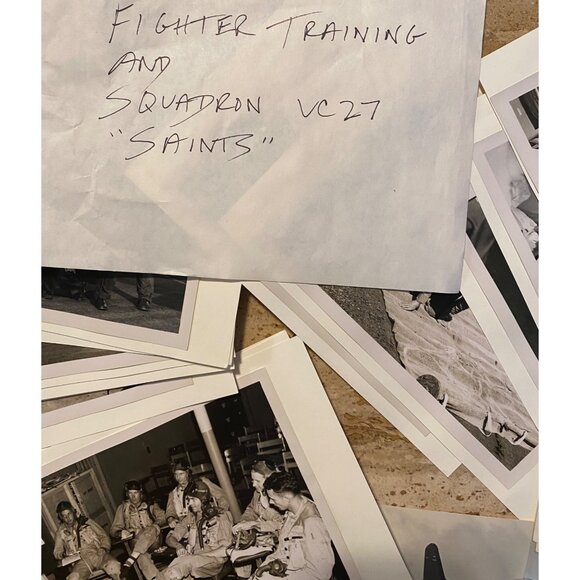 FIGHTER TRAINING
AND
SQUADRON VC27
"SAINTS"